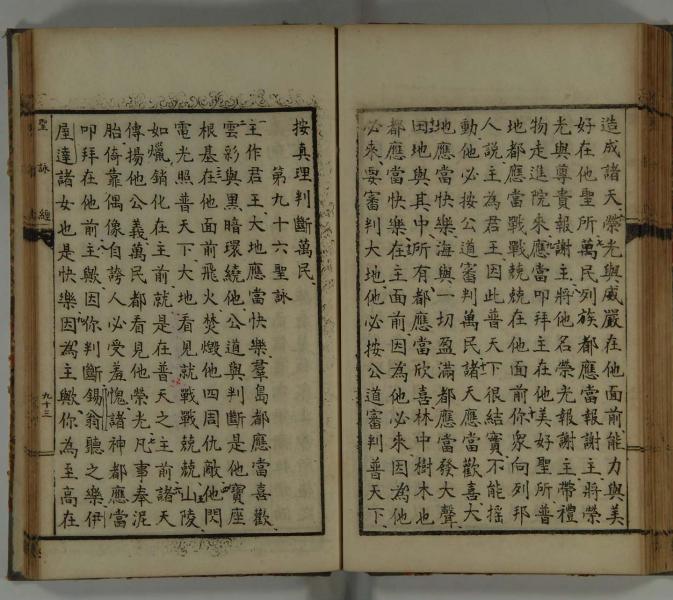 造成諸天榮光與威嚴在他面前能力與美
好在他聖所萬民列族都應當報謝主將榮
光與尊貴報謝主將他名榮光報謝主帶禮
物走進院來應當叩拜主在他美好聖所普
地都應當戰戰兢兢在他面前你衆向列邦
人説主為君王因此普天下很結實不能揺
動他必按公道審判萬民諸天應當歡喜大
地應當快樂海與一切盈滿都應當發大聲
田地與其中所有都應當欣喜林中樹木也
都應當快樂在主面前因為他必来因為他
必来要審判大地他必按公道審判普天下
按真理判斷萬民
第九十六聖詠
主作君王大地應當快樂羣島都應當喜歡
雲彩與黑暗環繞他公道與判斷是他寶座
根基在他面前飛火焚燬他四周仇敵他閃
電光照普天下大地看見就戰戰兢兢山陵
如蠟銷化在主前就是在普天之主前諸天
傳揚他公義萬民都看見他榮光凡事奉泥
胎倚靠偶像自誇人必受羞愧諸神都應當
叩拜在他前主歟因你判斷錫翁聽之樂伊
屋達諸女也是快樂因為主歟你為至高在
聖詠經
九十三